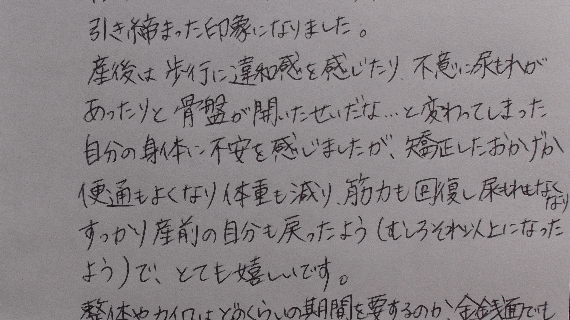 引き締まった印象になりました。
産後は歩行に違和感を感じたり、不意に尿もれが
あったりと骨盤が開いたせいだな…と変わってしまった
自分の身体に不安を感じましたが、矯正したおかげか
便通もよくなり体重も減り、筋力も回復し尿もれもなくなり
すっかり産前の自分も戻ったよう(むしろそれ以上になった
よう)で、とても嬉しいです。
整体やカイロはどのくらいの期間を要するのか金銭面でも